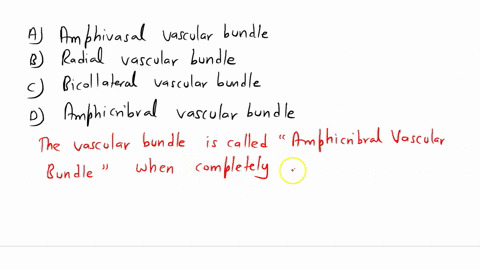 A) Amphivasal vascular bundle
B) Radial vascular bundle
C) Bicollateral vascular bundle
D) Amphicribral vascular bundle
The vascular bundle is called "Amphicribral Vascular
Bundle" when completely